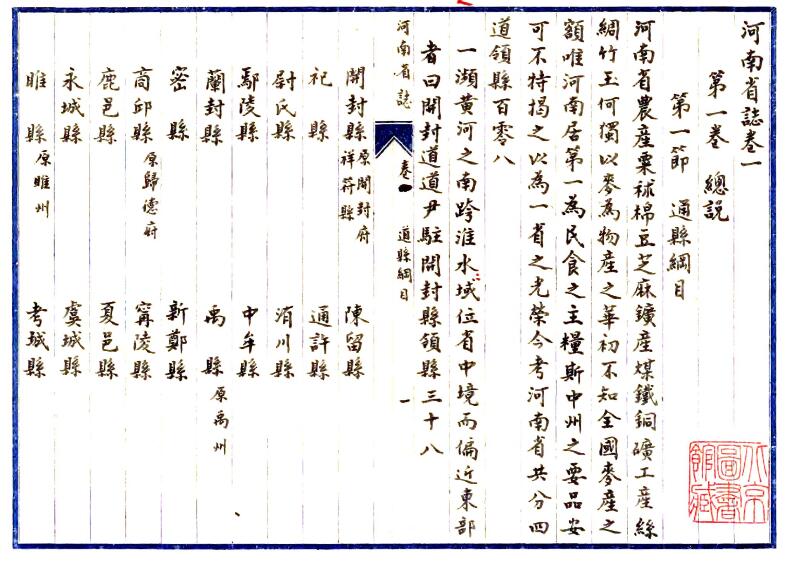 河南省誌卷一
第一卷 總説
第一節 通縣綱目
河南省農產粟秫棉豆芝麻鑛產煤鐵銅礦工產絲
綢竹玉何獨以麥為物產之華初不知全國麥產之
額唯河南居第一為民食之主糧斯中州之要品安
可不特揭之以為一省之光榮今考河南省共分四
道領縣百零八
一瀕黃河之南跨淮水域位省中境而偏近東部
者曰開封道道尹駐開封縣領縣三十八
河南省誌 卷一 道縣綱目 一
開封縣 原開封府祥符縣 陳留縣
杞縣 通許縣
尉氏縣 洧川縣
鄢陵縣 中牟縣
蘭封縣 禹縣 原禹州
密縣 新鄭縣
商邱縣 原歸德府 甯陵縣
鹿邑縣 夏邑縣
永城縣 虞城縣
睢縣 原睢州 考城縣
北京圖書館藏